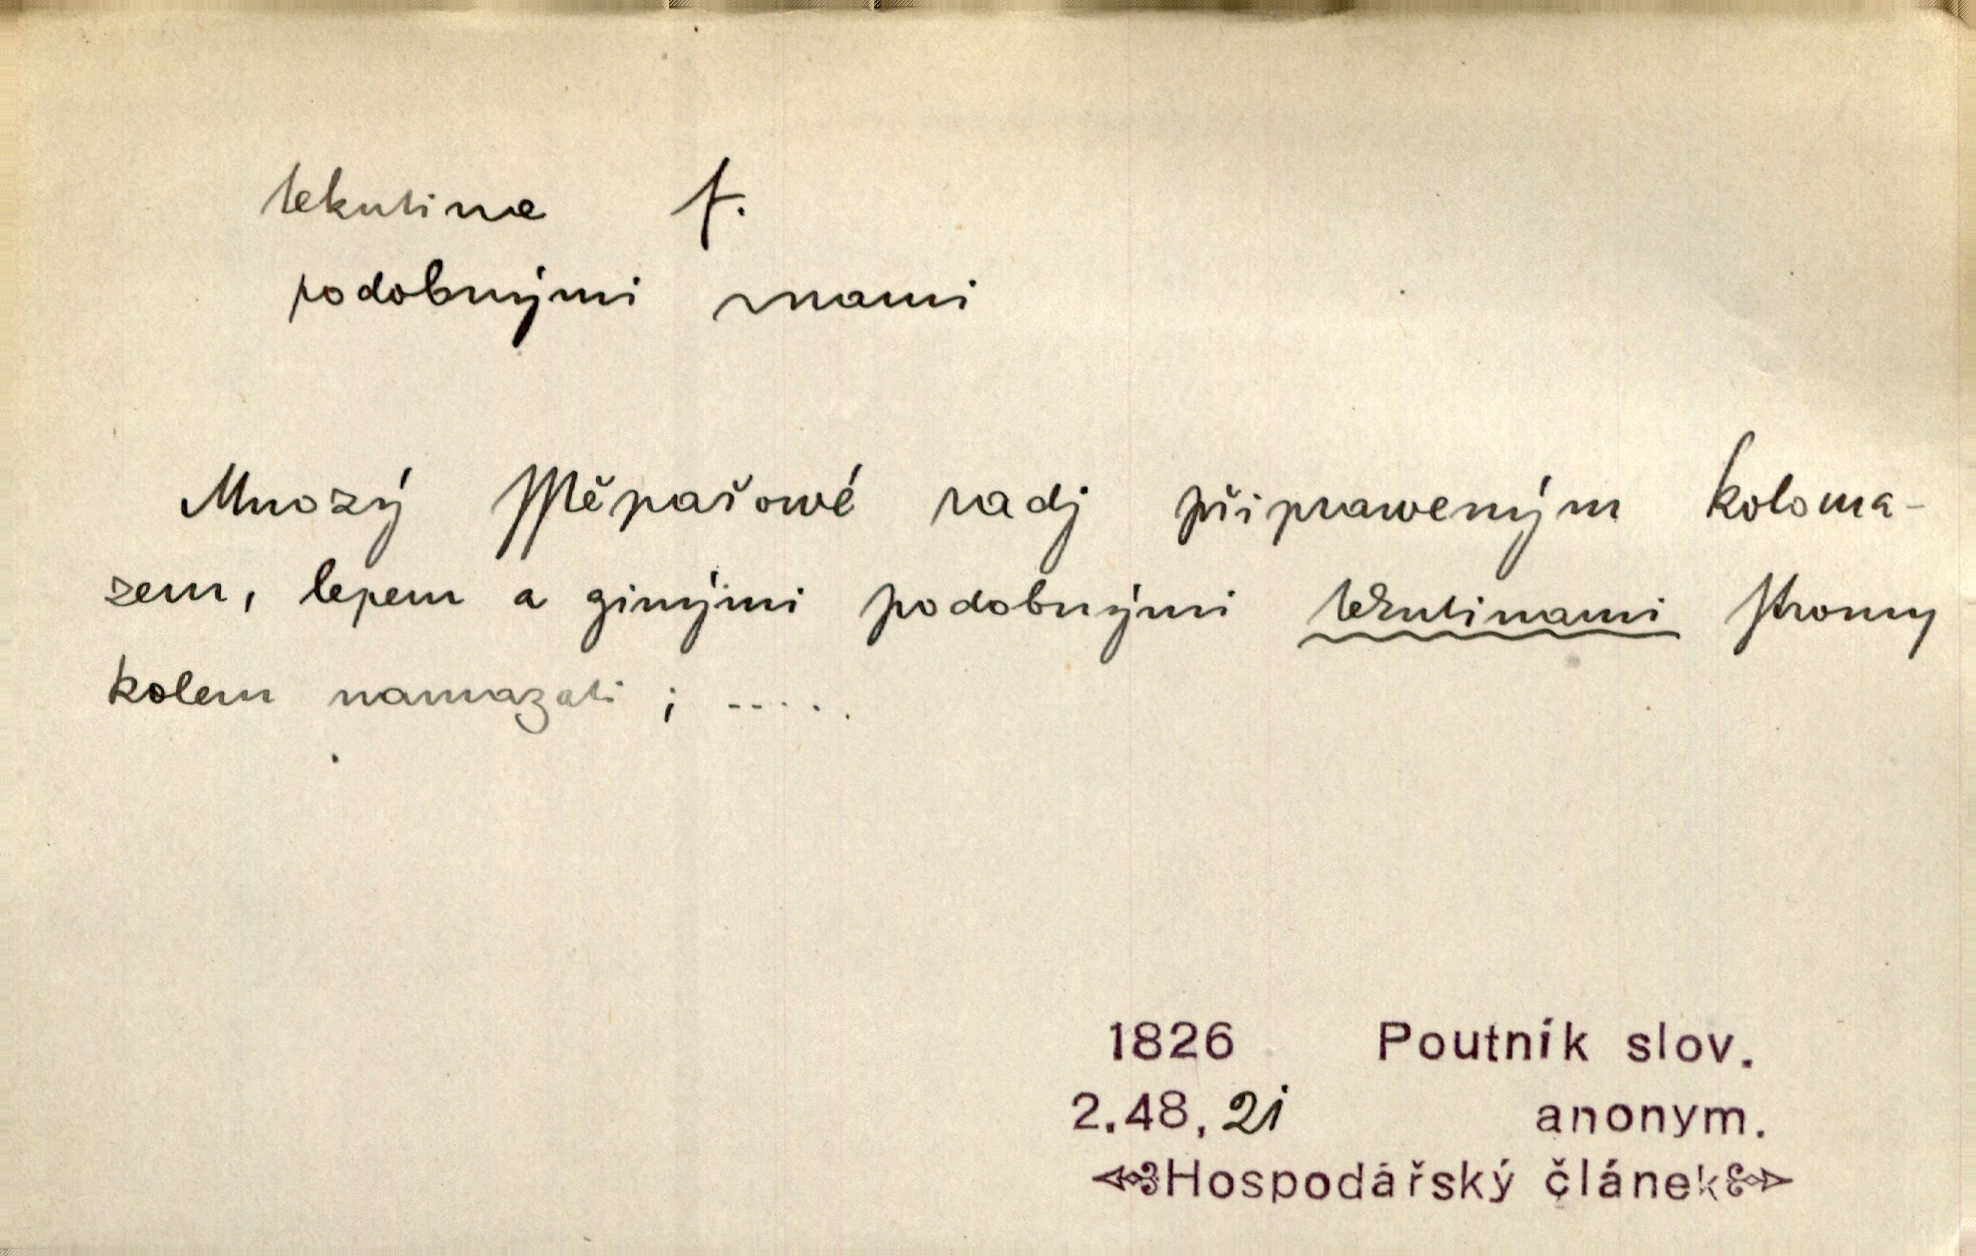 tekutina f.
podobnými ~nami
Mnozý Sstěpařowé radj připraweným koloma-
zem, lepem a ginými podobnými tekutinami stromy
kolem namazati ; .....
1826 Poutník slov.
2.48, 21 anonym.
Hospodářský článek